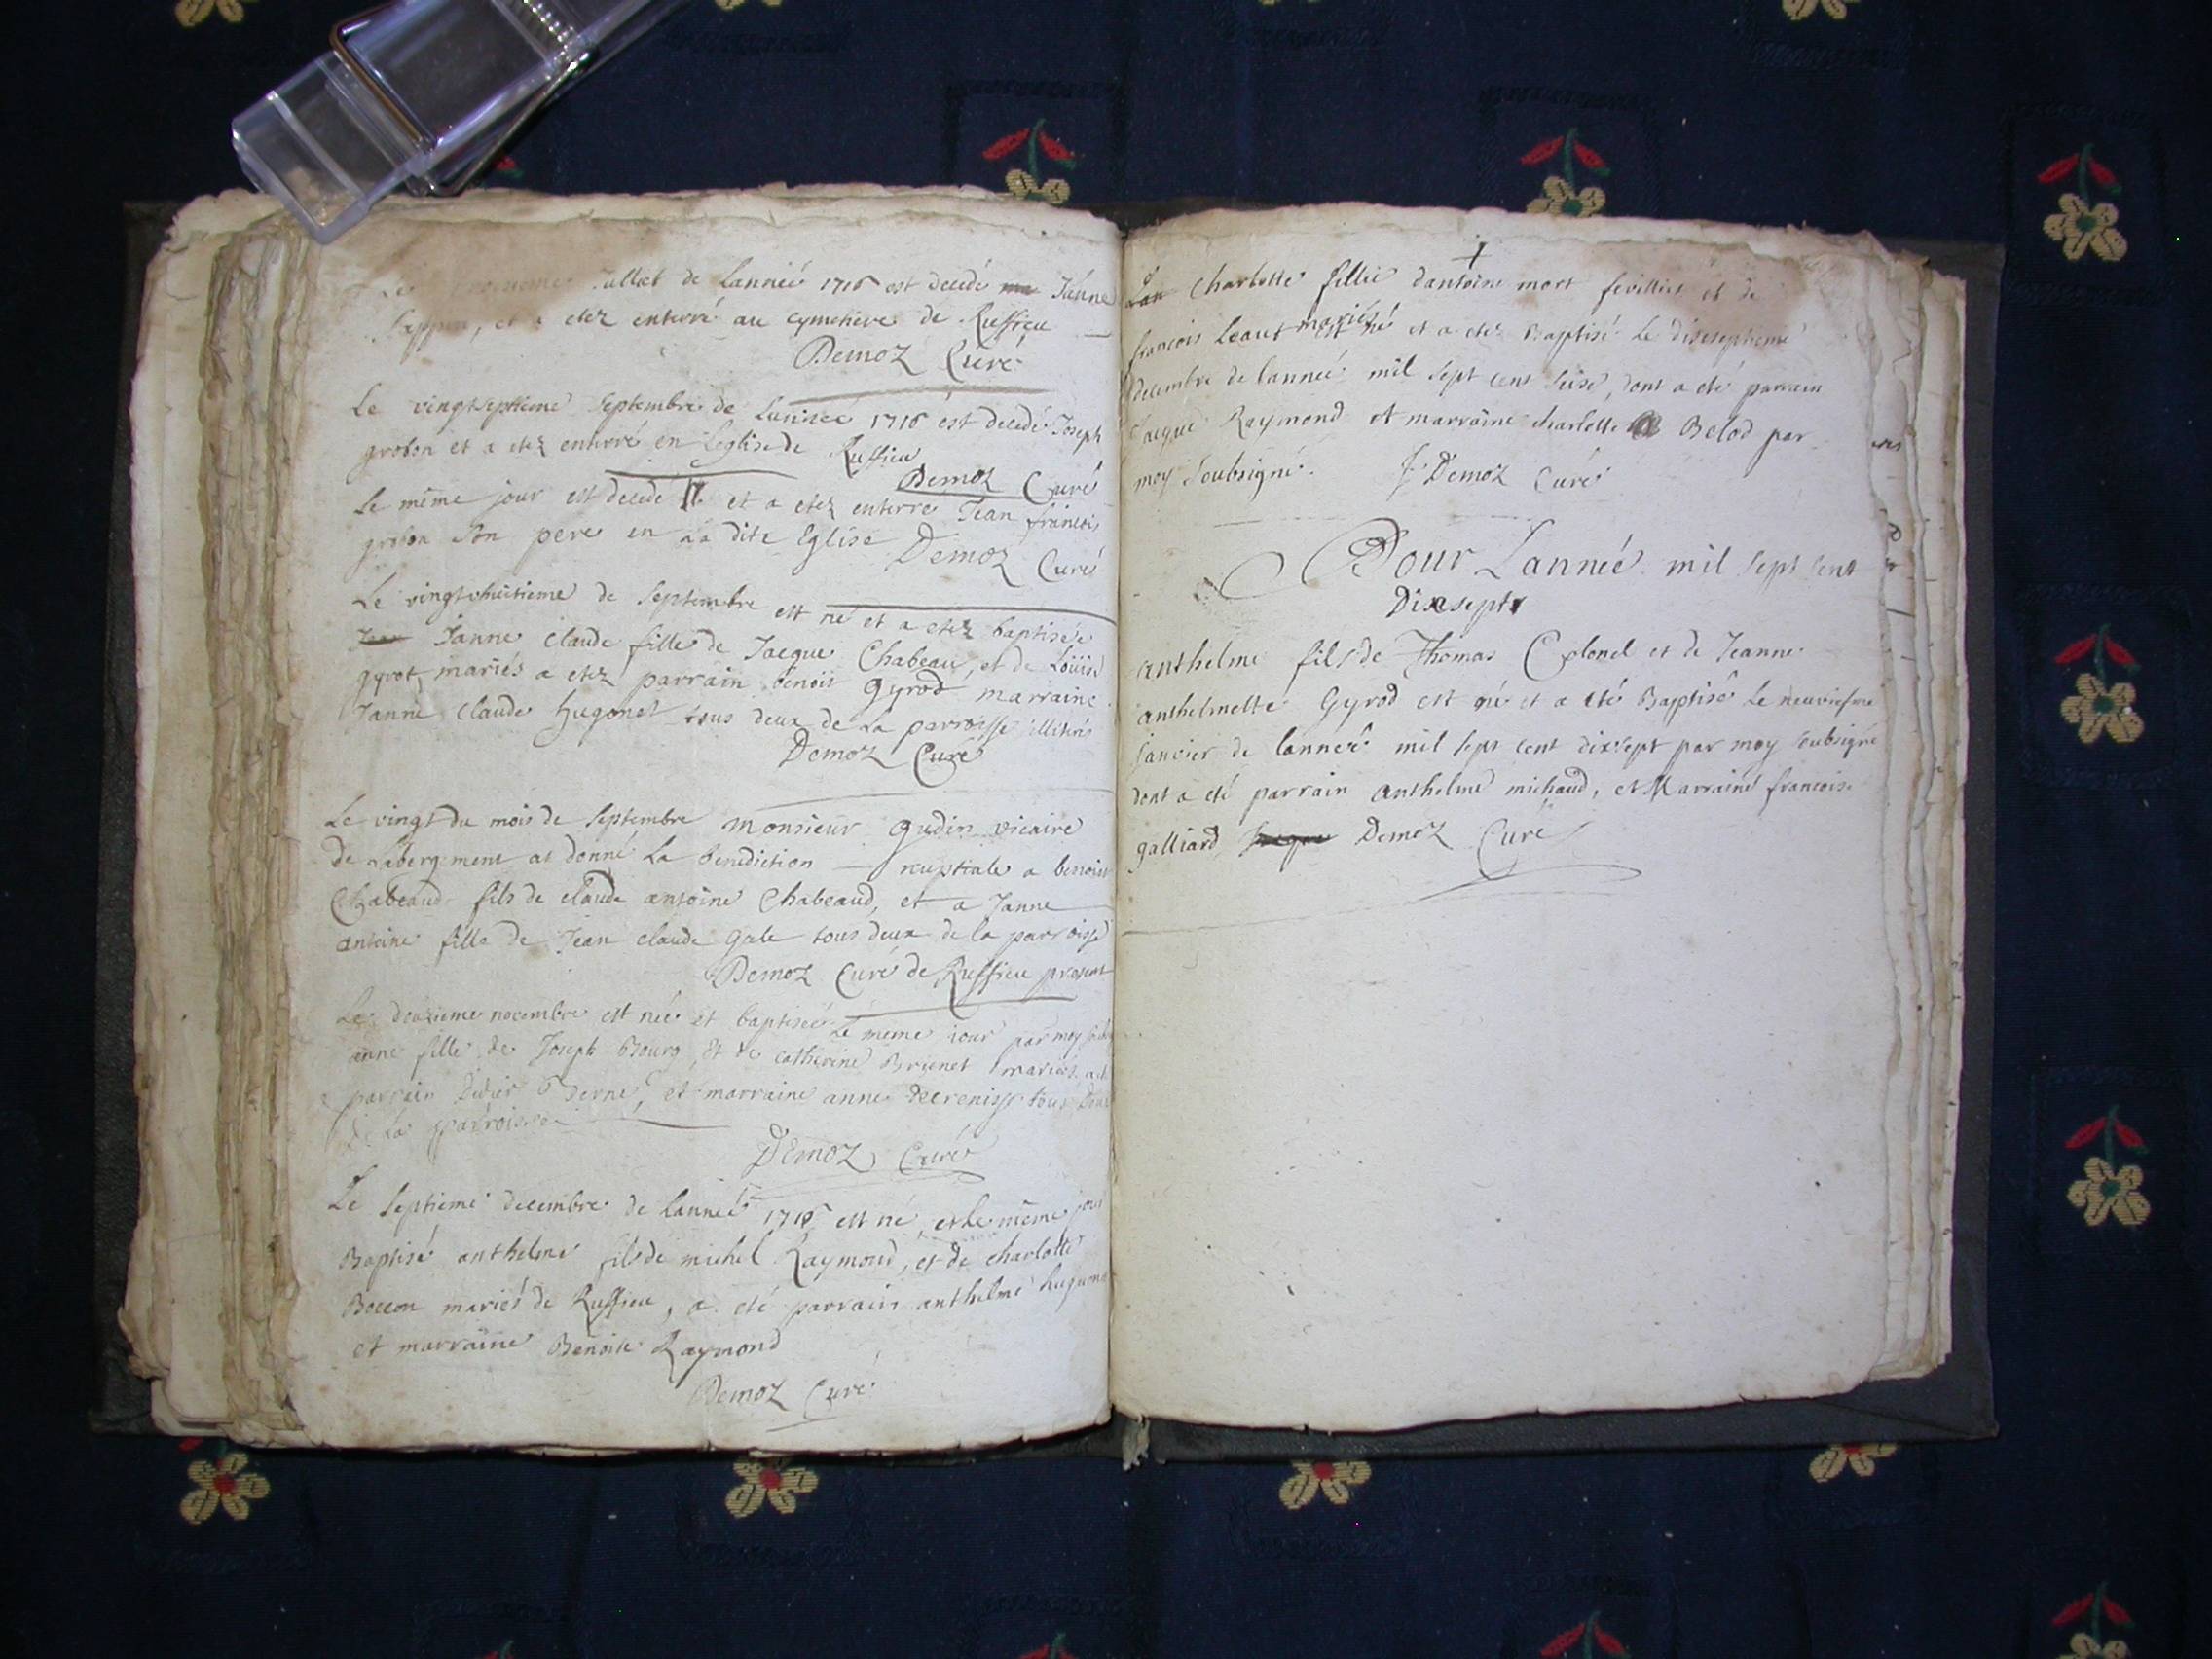 Le juillet de Lanneé 1716 est decedé Janne
et a etez enterré au cymetiere de Ruffieu
Demoz Curé
Le vingtseptieme septembre de Lanneé 1716 est decedé Joseph
grobon et a etez enterré en Leglise de Ruffieu
Demoz Curé
Le même jour est decede et a etez enterré Jean francois
grobon son pere en La dite Eglise Demoz Curé
Le vingthuitieme de septembre est né et a etez baptiseé
Janne Claude fille de Jacque Chabeau, et de Loüise
gyrot, mariés a etez parrain benoit Gyrod marraine
Janne Claude hugonet tous deux de La parroisse illitirés
Demoz Curé
Le vingt du mois de septembre monsieur Gudin vicaire
de Labergement at donné La benediction nuptiale a benoist
Chabeaud fils de claude antoine Chabeaud, et a Janne
antoine fille de Jean claude Gale tous deux de la parroisse
Demoz Curé de Ruffieu present
Le deuxieme novembre est neé et baptiseé Le meme iour par moy
anne fille de Joseph Bourg, et de catherine Brunet mariés
parrain Berne, et marraine anne tous deux
de La parroisse
Demoz Curé
Le Septieme decembre de Lanneé 1716 est né et Le même jour
Baptisé anthelme fils de michel Raymond, et de charlotte
Boccon mariés de Ruffieu, a eté parrain anthelme hugonet
et marraine Benoite Raymond
Demoz Curé
Charlotte fillie dantoine mort fevillier et de
francois Leaut mariés est né et a etez Baptisé Le diseseptieme
decembre de lanneé mil sept cent seise, dont a eté parrain
Jacque Raymond et marraine charlotte Belod par
moy soubsigné. J. Demoz Curé
Pour Lanneé mil sept cent
Dixsept
anthelme fils de Thomas Colonel et de Jeanne
anthelmette Gyrod est né et a eté Baptisé Le neuviesme
janvier de lanneé mil sept cent dixsept par moy soubsigné
dont a eté parrain anthelme michaud, et Marraine francoise
galliard Demoz Curé